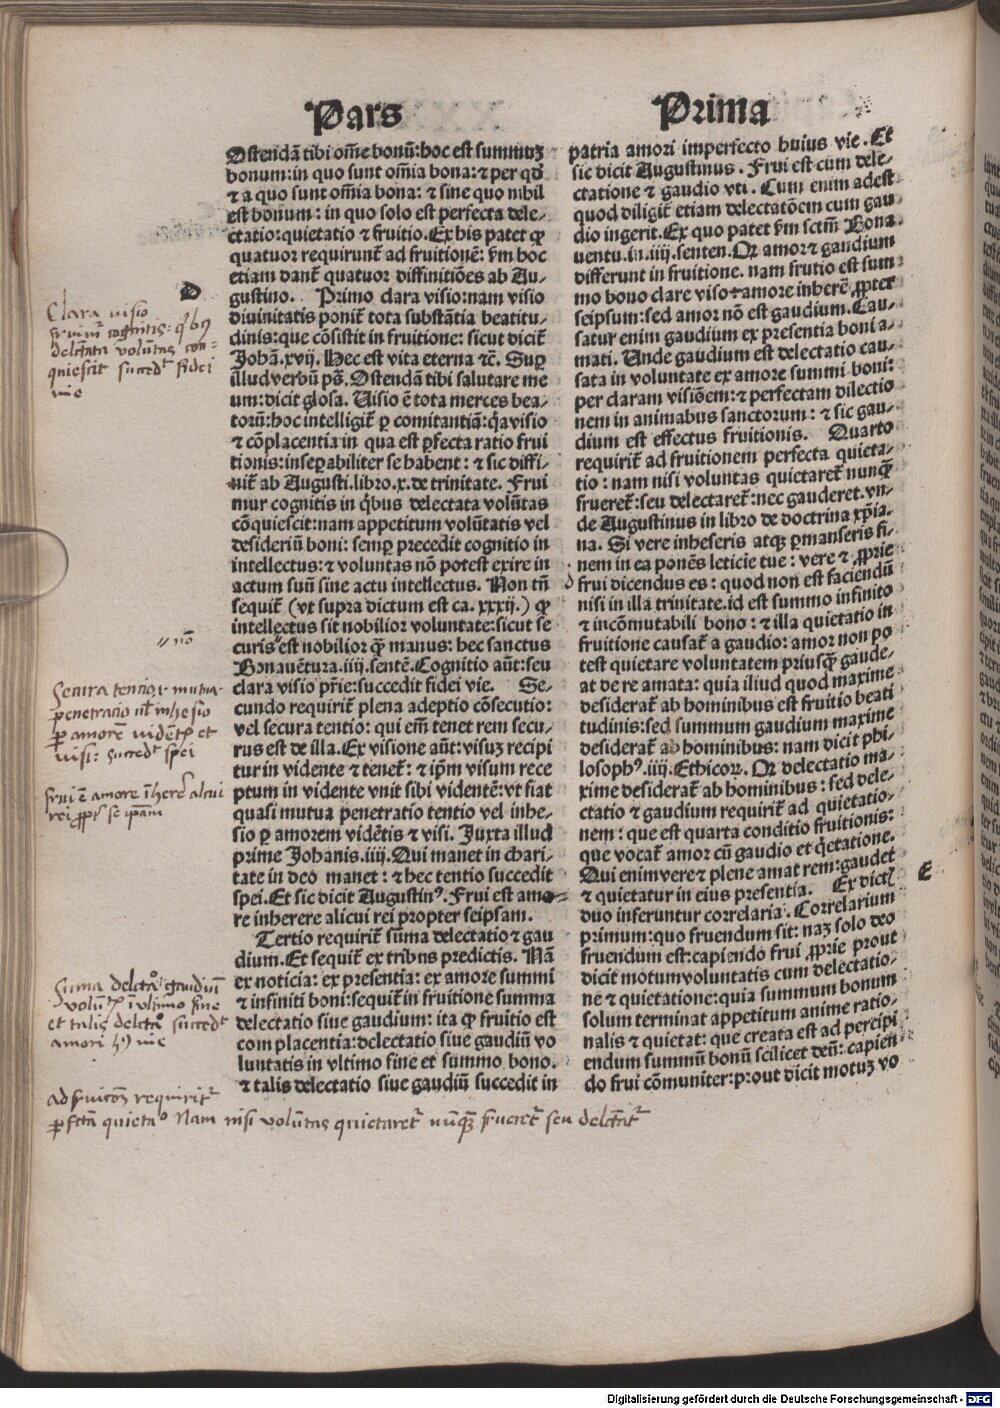 Pars
Ostendā tibi om̄e bonū: hoc est summuꝫ
bonum: in quo sunt om̄ia bona: ⁊ per qď
⁊ a quo sunt om̄ia bona: ⁊ sine quo nihil
est bonum: in quo solo est perfecta dele-
ctatio: quietatio ⁊ fruitio. Ex his patet ꝙ
quatuor requirunt̃ ad fruitionē: ẜm hoc
etiam dant̃ quatuor diffinitiōes ab Au-
gustino. Primo clara visio: nam visio
D
diuinitatis ponit̃ tota substātia beatitu-
dinis: que cōsistit in fruitione: sicut dicit̃
Johā. xvij. Hec est vita eterna ⁊c̃. Suꝑ
illud verbū pš. Ostendā tibi salutare me
um: dicit glosa. Uisio ē tota merces bea-
torū: hoc intelligit̃ ꝑ comitantiā: q̇a visio
⁊ cōplacentia in qua est ꝑfecta ratio frui
tionis: inseꝑabiliter se habent: ⁊ sic diffi-
nit̃ ab Augusti. libro. x. de trinitate. Frui
mur cognitis in q̇bus delectata volūtas
cōquiescit: nam appetitum volūtatis vel
desideriū boni: semꝑ precedit cognitio in
intellectus: ⁊ voluntas nō potest exire in
actum suū sine actu intellectus. Non tñ
sequit̃ (vt supra dictum est ca. xxxij.) ꝙ
intellectus sit nobilior voluntate: sicut se
curis est nobilior q̄ȝ manus: hec sanctus
Bonauētura. iiij. sentē. Cognitio aūt: seu
clara visio pr̄ie: succedit fidei vie. Se-
cundo requirit̃ plena adeptio cōsecutio:
vel secura tentio: qui em̄ tenet rem secu-
rus est de illa. Ex visione aūt: visuꝫ recipi
tur in vidente ⁊ tenet̃: ⁊ ip̄m visum rece
ptum in vidente vnit sibi videntē: vt fiat
quasi mutua penetratio tentio vel inhe-
sio ꝑ amorem vidētis ⁊ visi. Juxta illud
prime Johanis. iiij. Qui manet in chari-
tate in deo manet: ⁊ hec tentio succedit
spei. Et sic dicit Augustinꝰ. Frui est amo-
re inherere alicui rei propter seipsam.
Tertio requirit̃ sūma delectatio ⁊ gau
dium. Et sequit̃ ex tribus predictis. Nā
ex noticia: ex presentia: ex amore summi
⁊ infiniti boni: sequit̃ in fruitione summa
delectatio siue gaudium: ita ꝙ fruitio est
com placentia: delectatio siue gaudiū vo
luntatis in vltimo fine et summo bono.
⁊ talis delectatio siue gaudiū succedit in
Prima
patria amori imperfecto huius vie. Et
sic dicit Augustinus. Frui est cum dele-
ctatione ⁊ gaudio vti. Cum enim adest
quod diligit̃ etiam delectatōem cum gau
dio ingerit. Ex quo patet ẜm sctm̄ Bona
uentu. in. iiij. senten. Qꝛ amor ⁊ gaudium
differunt in fruitione. nam frutio est sum-
mo bono clare viso amore inherē ꝓpter
seipsum: sed amor nō est gaudium. Cau-
satur enim gaudium ex presentia boni a-
mati. Unde gaudium est delectatio cau-
sata in voluntate ex amore summi boni:
per claram visiōem: ⁊ perfectam dilectio
nem in animabus sanctorum: ⁊ sic gau-
dium est effectus fruitionis. Quarto
requirit̃ ad fruitionem perfecta quieta-
tio: nam nisi voluntas quietaret̃ nunq̄ȝ
frueret̃: seu delectaret̃: nec gauderet. vn-
de Augustinus in libro de doctrina xp̄ia-
na. Si vere inheseris atqꝫ ꝑmanseris fi-
nem in ea ponēs leticie tue: vere ⁊ ꝓprie
frui dicendus es: quod non est faciendū
nisi in illa trinitate. id est summo infinito
⁊ incōmutabili bono: ⁊ illa quietatio in
fruitione causat̃ a gaudio: amor non po
test quietare voluntatem priusq̄ȝ gaude-
at de re amata: quia illud quod maxime
desiderat̃ ab hominibus est fruitio beati
tudinis: sed summum gaudium maxime
desiderat̃ ab hominibus: nam dicit phi-
losophꝰ. iiij. Ethicoꝝ. Qꝛ delectatio ma-
xime desiderat̃ ab hominibus: sed dele-
ctatio ⁊ gaudium requirit̃ ad quietatio-
nem: que est quarta conditio fruitionis:
que vocat̃ amor cū gaudio et q̇etatione.
Qui enim vere ⁊ plene amat rem: gaudet
⁊ quietatur in eius presentia. Ex dict̃
E
duo inferuntur correlaria. Correlarium
primum: quo fruendum sit: naꝫ solo deo
fruendum est: capiendo frui ꝓprie prout
dicit motum voluntatis cum delectatio-
ne ⁊ quietatione: quia summum bonum
solum terminat appetitum anime ratio-
nalis ⁊ quietat: que creata est ad percipi
endum summū bonū scilicet deū: capien-
do frui cōmuniter: prout dicit motuꝫ vo
Clara visio
fruimur cognitis: q̇bꝰ
delectata voluntas con-
quiescit succedt fidei
vie
nō
Secura tentio: mutua
penetratio vl inhesio
ꝑ amorē vidētis et
visi: succedt spei
frui ē amore īherē alicui
rei ꝓpt se ipsam
Suma delcto: gaudiū
volūt. ī vltimo fine
et talis delcto succedt
amori hꝰ vie
ad fruitōem requiritr
ꝑfctā quietatō Nam nisi volūtas quietaret̃ nunq̄ȝ frueret̃ seu delctat̃
Digitalisierung gefördert durch die Deutsche Forschungsgemeinschaft - DFG